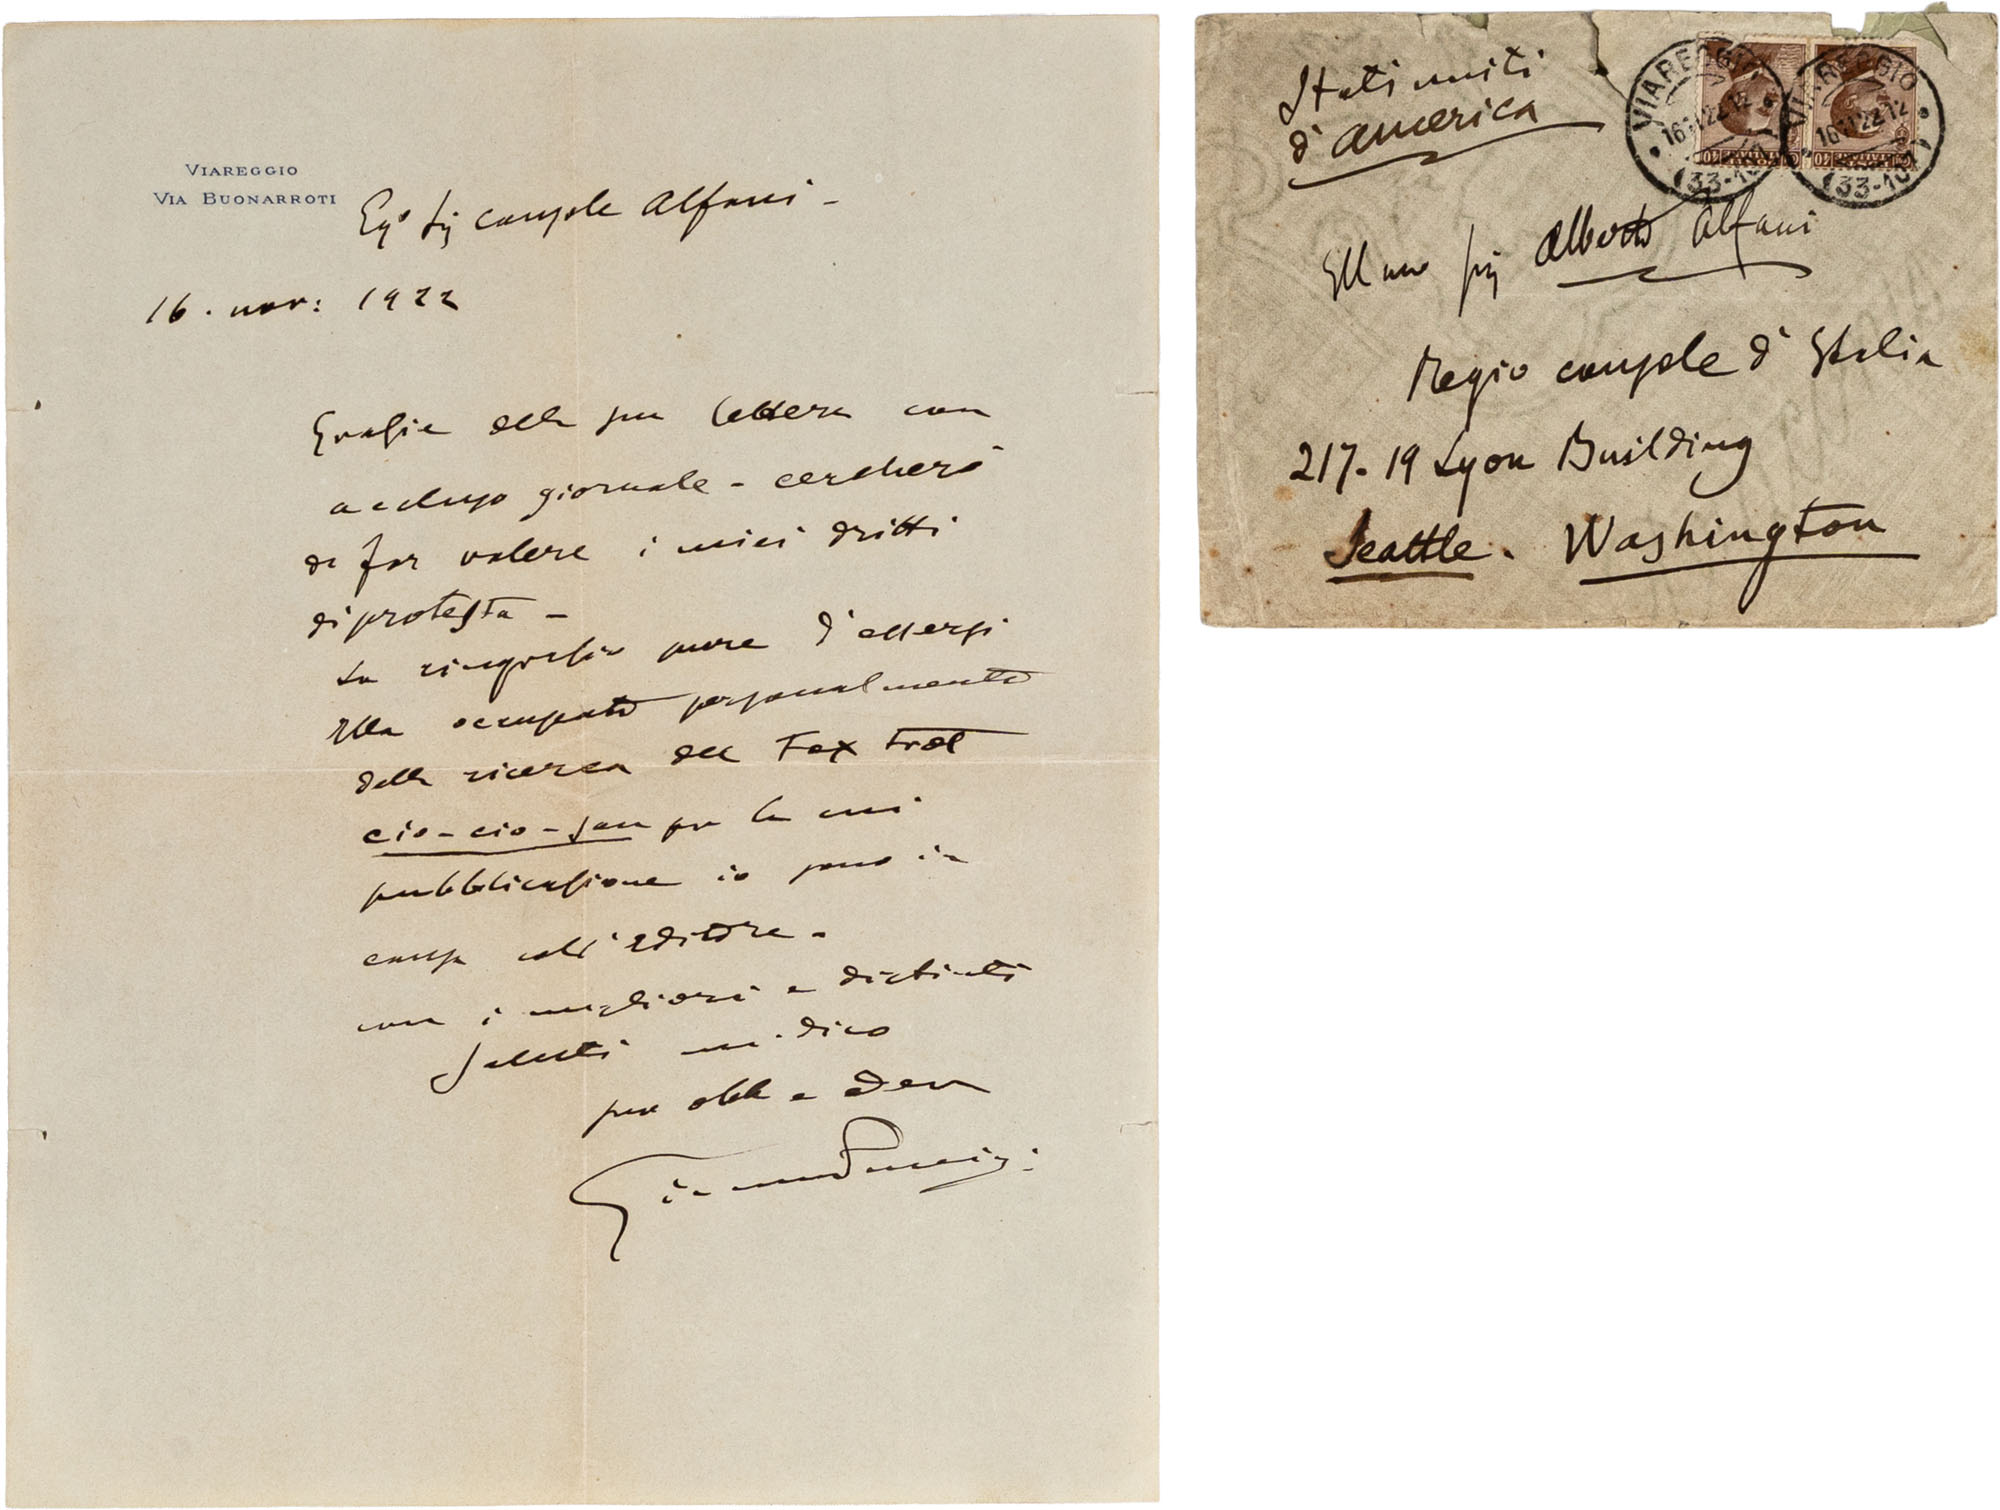 VIAREGGIO
VIA BUONARROTI
Eg⁰ Sig console Alfani –
16. nov: 1922
Grazie della sua lettera con
accluso giornale – cercherò
di far valere i miei dritti
di protesta –
La ringrazio pure d'essersi
Ella occupato personalmente
della ricerca del Fox Trot
cio-cio-san per la cui
pubblicazione io sono in
causa coll'Editore –
con i migliori e distinti
saluti mi dico
suo obb e dev
Giacomo Puccini
Stati uniti
d'america
VIAREGGIO
VIAREGGIO
Ill mo Sig Alberto Alfani
Regio console d'Italia
217-19 Lyon Building
Seattle. Washington